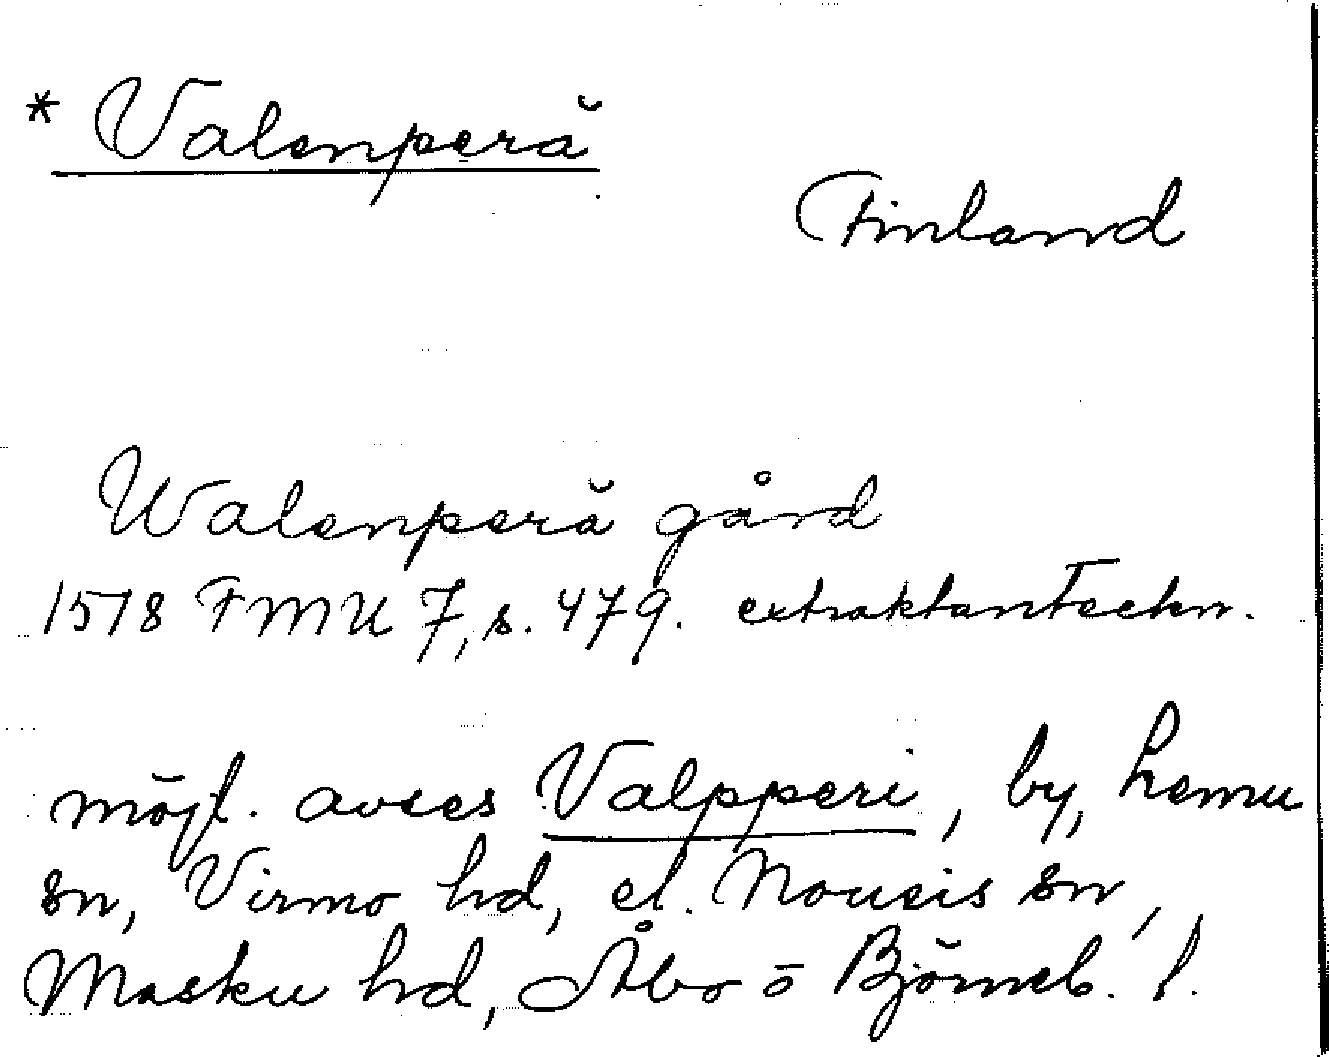 * Valenperä
Finland
Walenperä gård
1578 FMU 7, s. 479. extraktanteckn.
möjl. avses Valpperi, by, Lemu
sn, Virmo hd, el. Nousis sn,
Masku hd, Åbo o Björneb. l.